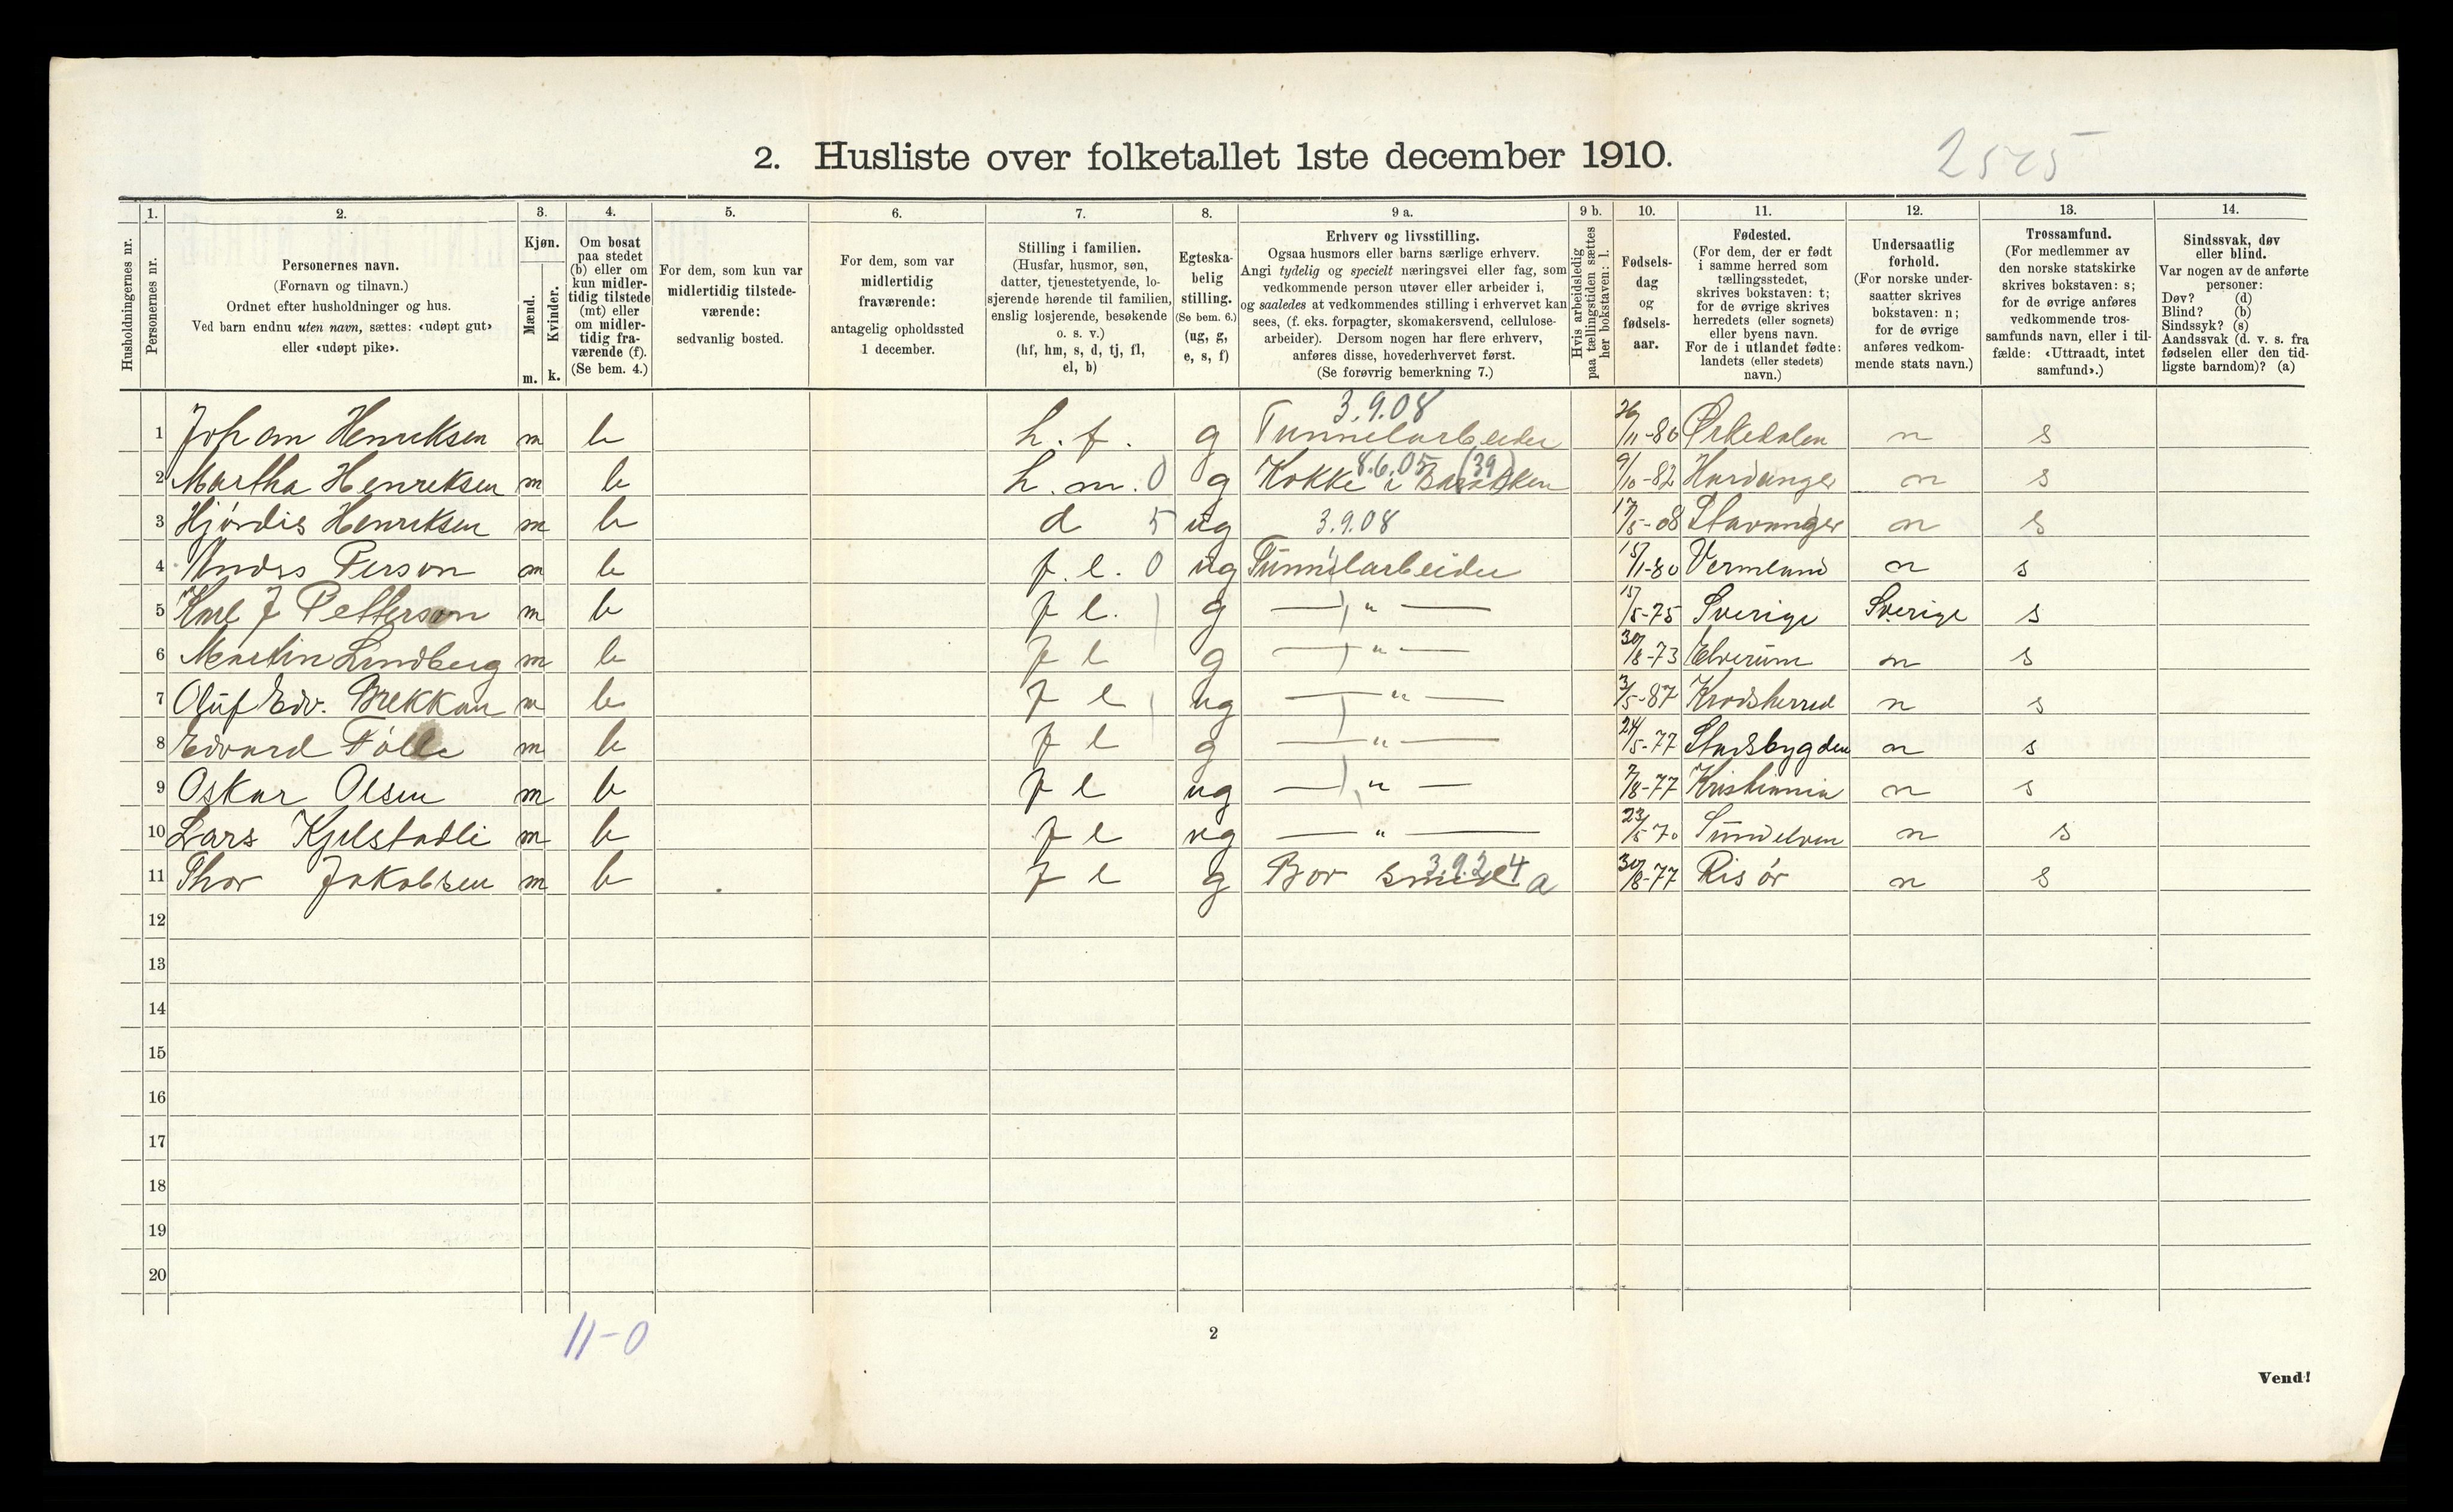 2. Husliste over folketallet 1ste december 1910.
2525
1. 2. 3. 4. 5. 6. 7. 8. 9 a. 9 b. 10. 11. 12. 13. 14.
Husholdningernes nr.
Personernes nr.
Personernes navn.
(Fornavn og tilnavn.)
Ordnet efter husholdninger og hus.
Ved barn endnu uten navn, sættes: «udøpt gut»
eller «udøpt pike».
Kjøn.
Mænd.
Kvinder.
m. k.
Om bosat
paa stedet
(b) eller om
kun midler-
tidig tilstede
(mt) eller
om midler-
tidig fra-
værende (f).
(Se bem. 4.)
For dem, som kun var
midlertidig tilstede-
værende:
sedvanlig bosted.
For dem, som var
midlertidig
fraværende:
antagelig opholdssted
1 december.
Stilling i familien.
(Husfar, husmor, søn,
datter, tjenestetyende, lo-
sjerende hørende til familien,
enslig losjerende, besøkende
o. s. v.)
(hf, hm, s, d, tj, fl,
el, b)
Egteska-
belig
stilling.
(Se bem. 6.)
(ug, g,
e, s, f)
Erhverv og livsstilling.
Ogsaa husmors eller barns særlige erhverv.
Angi tydelig og specielt næringsvei eller fag, som
vedkommende person utøver eller arbeider i,
og saaledes at vedkommendes stilling i erhvervet kan
sees, (f. eks. forpagter, skomakersvend, cellulose-
arbeider). Dersom nogen har flere erhverv,
anføres disse, hovederhvervet først.
(Se forøvrig bemerkning 7.)
Hvis arbeidsledig
paa tællingstiden sættes
her bokstaven: l.
Fødsels-
dag
og
fødsels-
aar.
Fødested.
(For dem, der er født
i samme herred som
tællingsstedet,
skrives bokstaven: t;
for de øvrige skrives
herredets (eller sognets)
eller byens navn.
For de i utlandet fødte:
landets (eller stedets)
navn.)
Undersaatlig
forhold.
(For norske under-
saatter skrives
bokstaven: n;
for de øvrige
anføres vedkom-
mende stats navn.)
Trossamfund.
(For medlemmer av
den norske statskirke
skrives bokstaven: s;
for de øvrige anføres
vedkommende tros-
samfunds navn, eller i til-
fælde: «Uttraadt, intet
samfund».)
Sindssvak, døv
eller blind.
Var nogen av de anførte
personer:
Døv? (d)
Blind? (b)
Sindssyk? (s)
Aandssvak (d. v. s. fra
fødselen eller den tid-
ligste barndom)? (a)
3.9.08
1 Johan Henriksen m b h. f. g Tunnelarbeider 26/11-80 Ørkedalen n s
8.6.05 (39)
2 Martha Henreksen m b h. m. 0 g Kokke i Barakken 9/10-82 Hardanger n s
3 Hjórdis Henriksen m b d 5 ug 3.9.08 17/5-08 Stavanger n s
4 Andrs Person m b f. l. 0 ug Tunnelarbeider 15/1-80 Vermland n s
5 Karl J Petterson m b f l. g — " — 15/5-75 Sverige Sverige s
6 Martin Lindberg m b f l g — " — 30/8-73 Elverum n s
7 Oluf Edv. Brekkan m b f l ug — " — 3/5-87 Krodsherred n s
8 Edvard Fölle m b f l g — " — 24/5-77 Stadsbygden n s
9 Oskar Olsen m b f l ug — " — 7/8-77 Kristiania n s
10 Lars Kjelstadli m b f l ug — " — 23/5 70 Sundelven n s
3.9.24
11 Thor Jakobsen m b f l g Bor smed a 30/8-77 Risör n s
12
13
14
15
16
17
18
19
20
11-0
2
Vend!